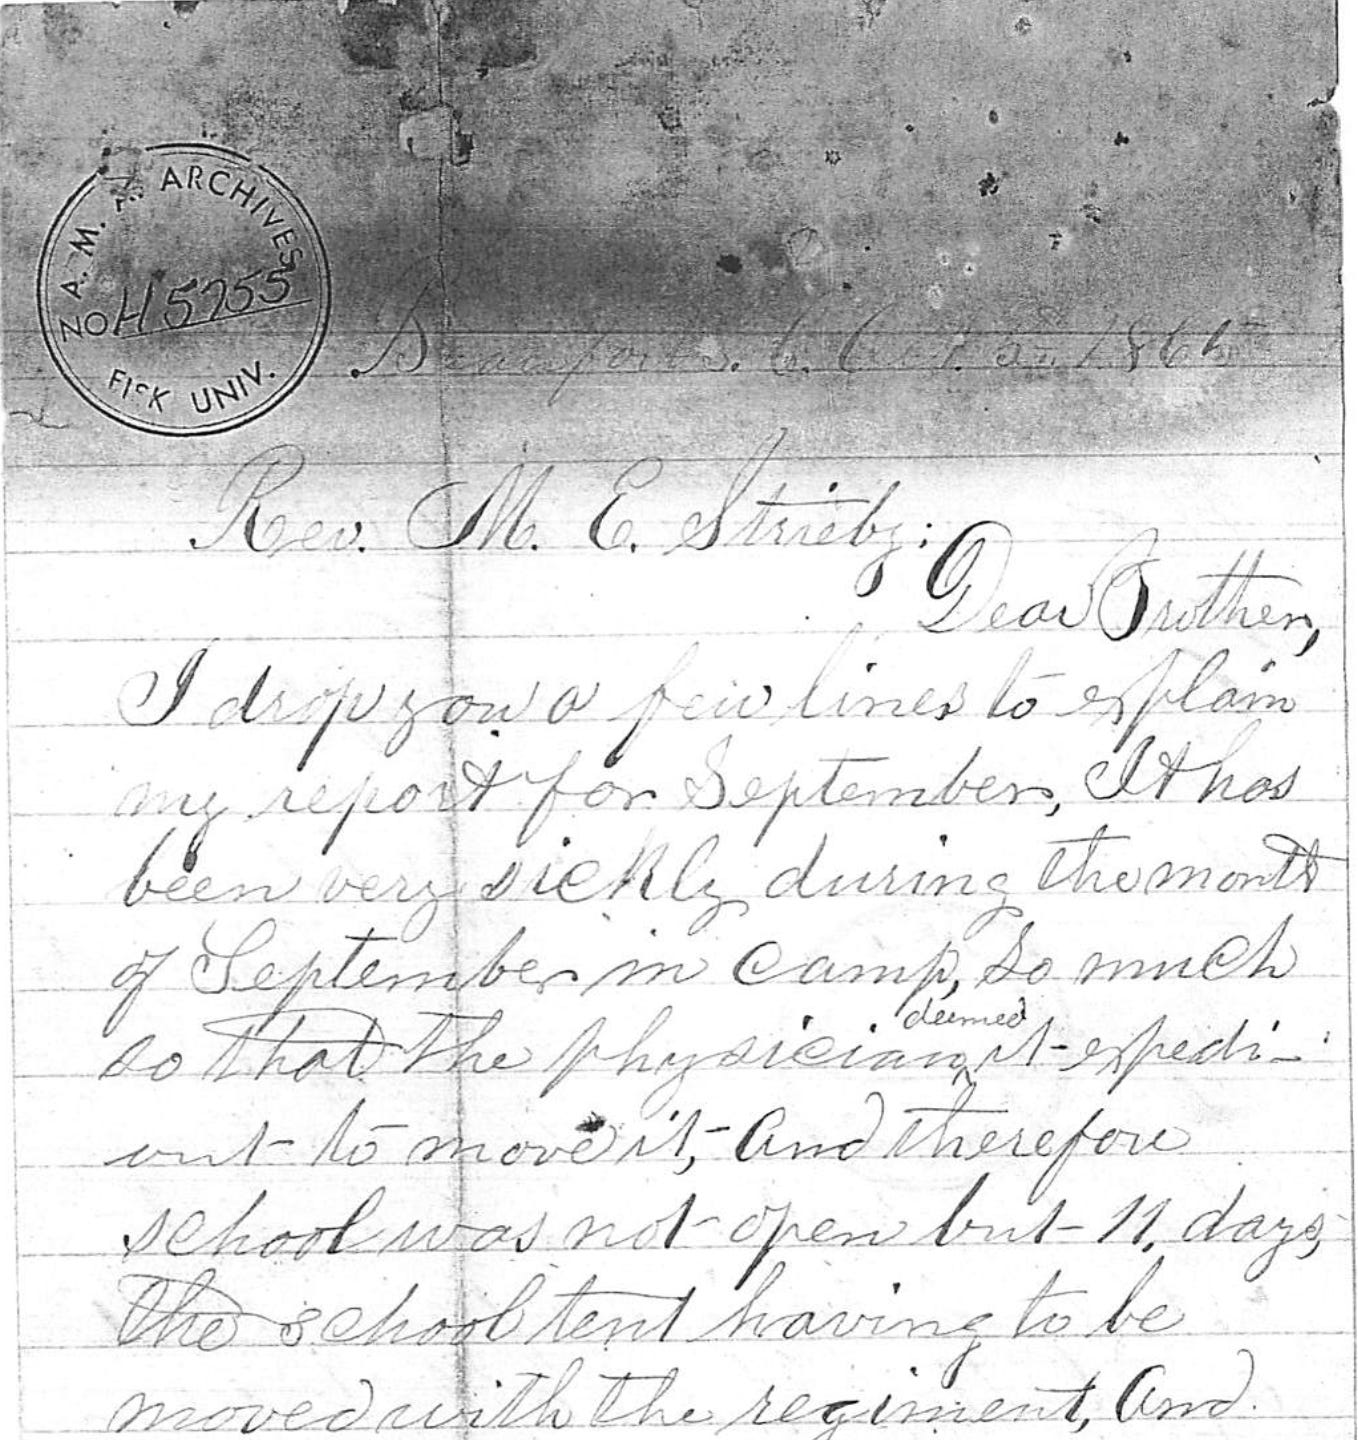 A. M. A. ARCHIVES
NO H 5755
FISK UNIV.
Beaufort S. C. Oct. 1865
Rev. M. E. Strieby:
Dear Brother,
I drop you a few lines to explain
my report for September, It has
been very sickly during the month
of September in camp, so much
so that the physician deemed it expedi-
ent to move it, and therefore
school was not open but 11. days,
the school tent having to be
moved with the regiment, and